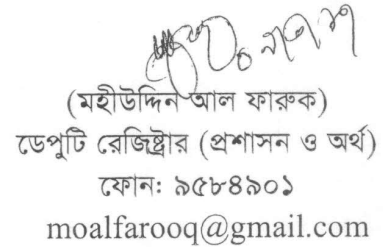 (মহীউদ্দিন আল ফারুক)
ডেপুটি রেজিষ্ট্রার (প্রশাসন ও অর্থ)
ফোন: ৯৫৮৪৯০১
moalfarooq@gmail.com